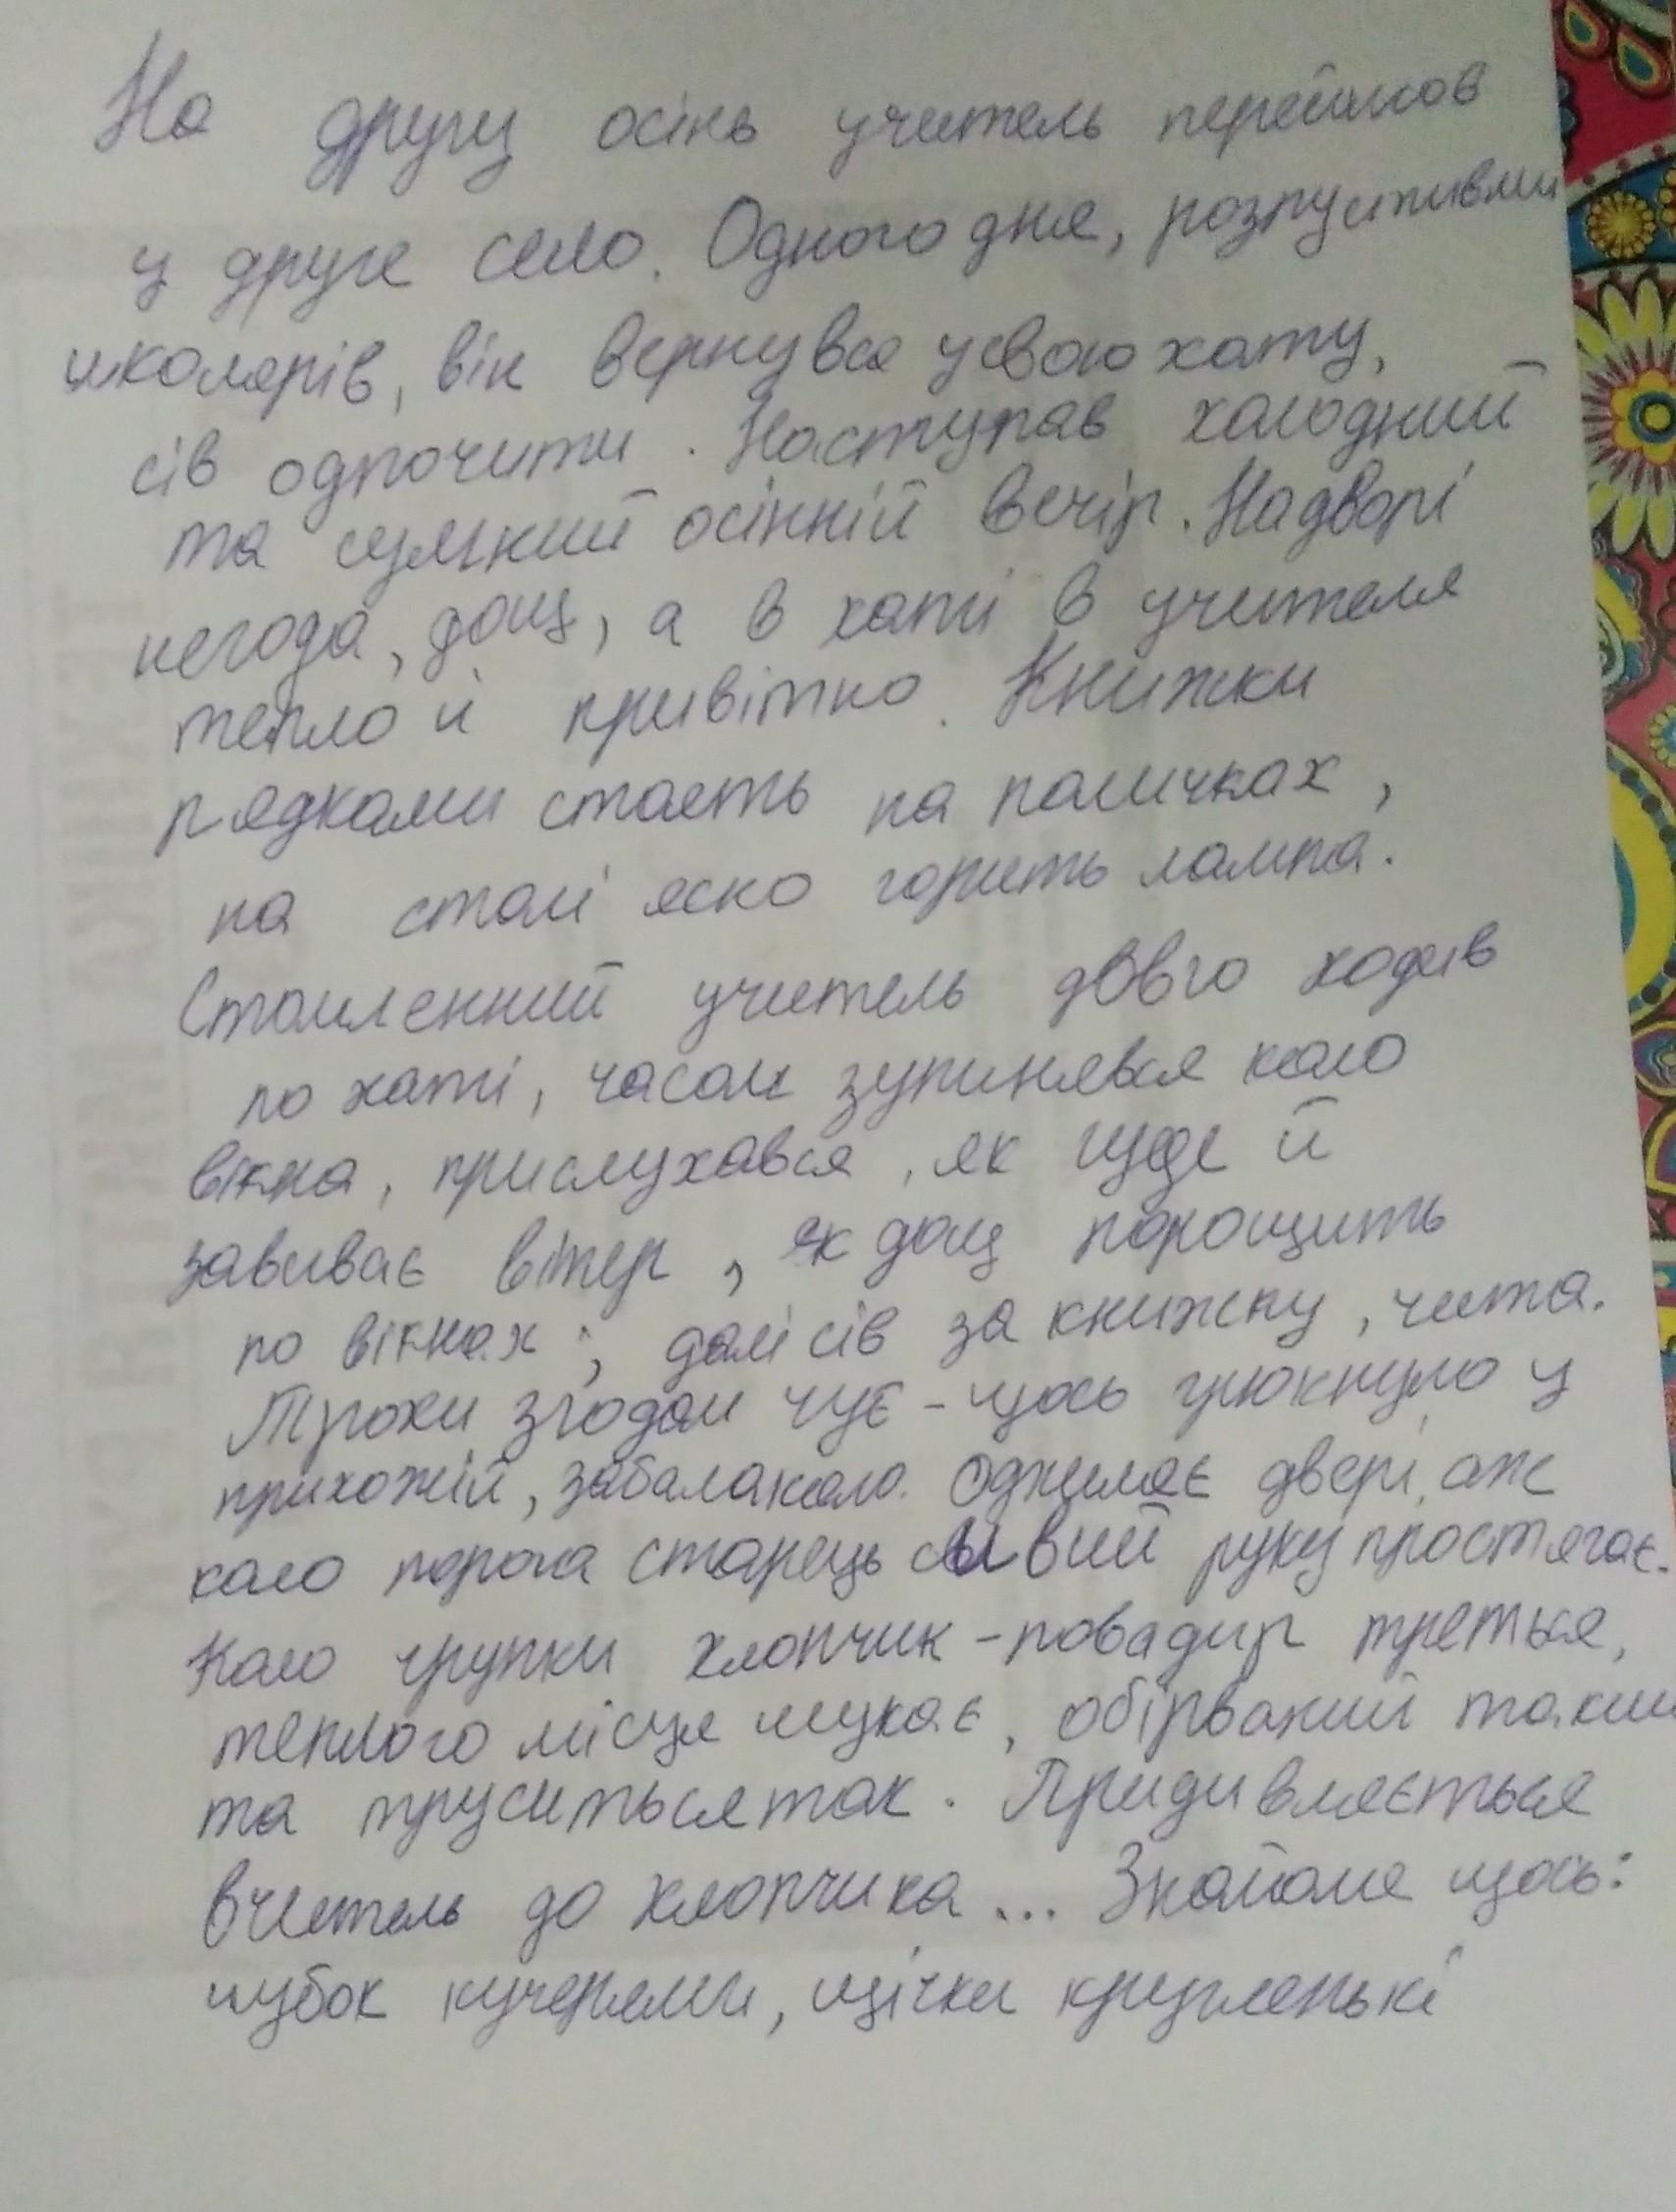 На другу осінь учитель перейшов
у друге село. Одного дня, розпустивши
школярів, він вернувся у свою хату,
сів одпочити. Наступав холодний
та сумний осінній вечір. Надворі
негода, дощ, а в хаті в учителя
тепло й привітно. Книжки
рядками стоять на поличках,
на столі ясно горить лампа.
Стомлений учитель довго ходив
по хаті, часом зупинявся коло
вікна, прислухався, як гуде й
завиває вітер, як дощ порощить
по вікнах; далі сів за книжку, чита.
Трохи згодом чує - щось грюкнуло у
прихожій, забалакало. Одхиляє двері, аж
коло порога старець сивий руку простягає.
Коло грубки хлопчик - повадир треться,
теплого місця шукає, обірваний такий
та труситься так. Придивляється
вчитель до хлопчика... Знайоме щось:
чубок кучерями, щічки кругленькі